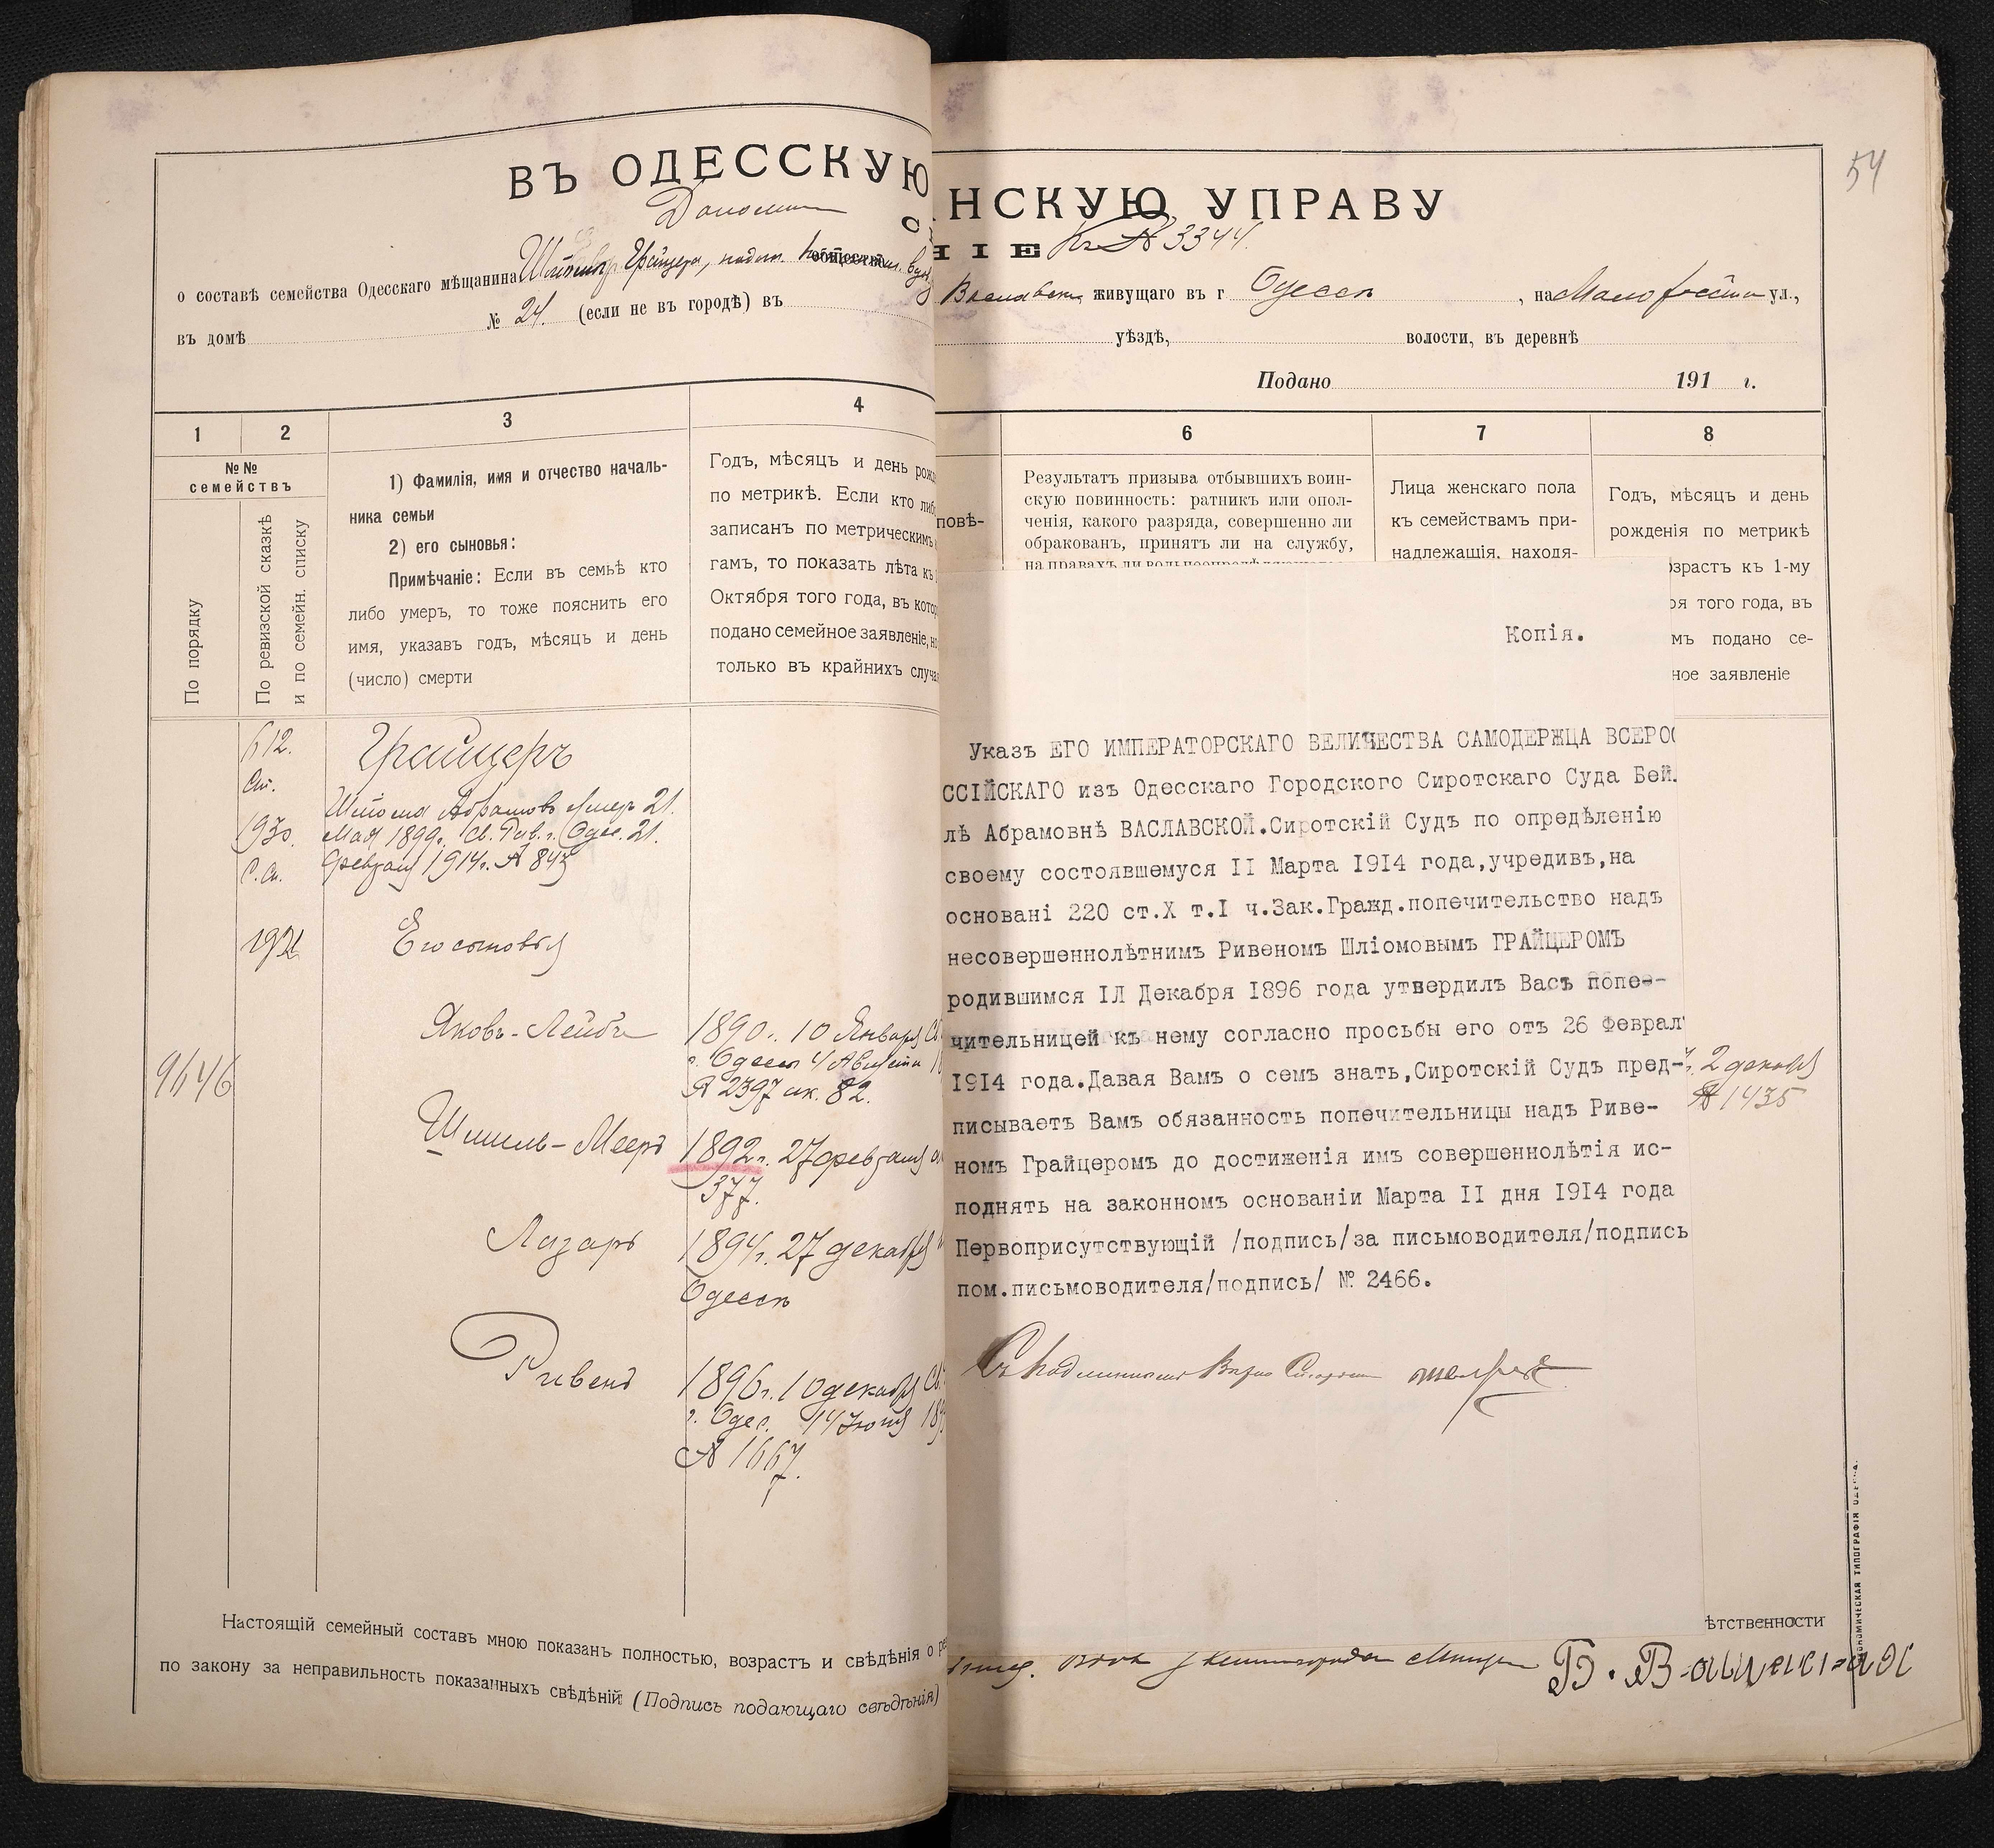 ВЪ ОДЕССКУЮ
НСКУЮ УПРАВУ
54
НІЕ
№ 3344.
о составѣ семейства Одесскаго мѣщанина Грайцера, общества
живущаго въ г Одессѣ, на ул.,
въ домѣ № 24. (если не въ городѣ) въ
уѣздѣ, волости, въ деревнѣ
Подано 191 г.
1
2
3
4
6
7
8
№№
семействъ
По порядку
По ревизской сказкѣ
и по семейн. списку
1) Фамилія, имя и отчество началь-
ника семьи
2) его сыновья:
Примѣчаніе: Если въ семьѣ кто
либо умеръ, то тоже пояснить его
имя, указавъ годъ, мѣсяцъ и день
(число) смерти
Годъ, мѣсяцъ и день
по метрикѣ. Если кто
записанъ по метрическимъ
гамъ, то показать лѣта
Октября того года, въ
подано семейное заявленіе,
только въ крайнихъ
повѣ-
Результатъ призыва отбывшихъ воин-
скую повинность: ратникъ или опол-
ченія, какого разряда, совершенно ли
обракованъ, принятъ ли на службу,
на правахъ ли
Лица женскаго пола
къ семействамъ при-
надлежащія, находя-
Годъ, мѣсяцъ и день
рожденія по метрикѣ
озрастъ къ 1-му
того года, въ
мъ подано се-
ное заявленіе
612.
Грайцеръ
Абрамовъ 21.
193
Мая 1899г. 21.
Февраля 1914г. № 843
Его сыновья
9646
Яковъ-Лейба
1890г. 10 Января
г. Одессы 4 Августа
№ 2397 82.
Мееръ
1892г. 27 февраля
377.
Лазарь
1894г. 27 декабря
Одессѣ
Ривенъ
1896г. 10 декабря
г. Одес. 14 Іюня
№ 1667.
Копія.
Указъ ЕГО ИМПЕРАТОРСКАГО ВЕЛИЧЕСТВА САМОДЕРЖЦА ВСЕРО
ССІЙСКАГО изъ Одесскаго Городского Сиротскаго Суда Бей.
лѣ Абрамовнѣ ВАСЛАВСКОЙ.Сиротскій Судъ по опредѣленію
своему состоявшемуся II Марта 1914 года,учредивъ,на
основані 220 ст.X т.I ч.Зак.Гражд.попечительство надъ
несовершеннолѣтнимъ Ривеномъ Шліомовымъ ГРАЙЦЕРОМЪ
родившимся Декабря 1896 года утвердилъ Васъ попе--
чительницей къ нему согласно просьбы его отъ 26 Феврал
1914 года.Давая Вамъ о семъ знать,Сиротскій Судъ пред-
писываетъ Вамъ обязанность попечительницы надъ Риве-
номъ Грайцеромъ до достиженія имъ совершеннолѣтія ис-
поднять на законномъ основаніи Марта II дня 1914 года
Первоприсутствующій /подпись/за письмоводителя/подпись
пом.письмоводителя/подпись/ № 2466.
2 декабря
№ 1435
Настоящій семейный составъ мною показанъ полностью, возрастъ и свѣдѣнія о
ѣтственности
по закону за неправильность показанныхъ свѣдѣній (Подпись подающаго свѣдѣнія)